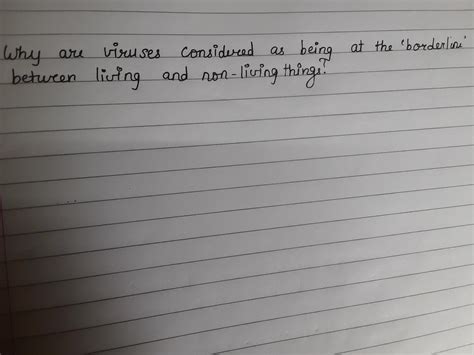 Why are viruses considered as being at the 'borderline'
between living and non-living things?